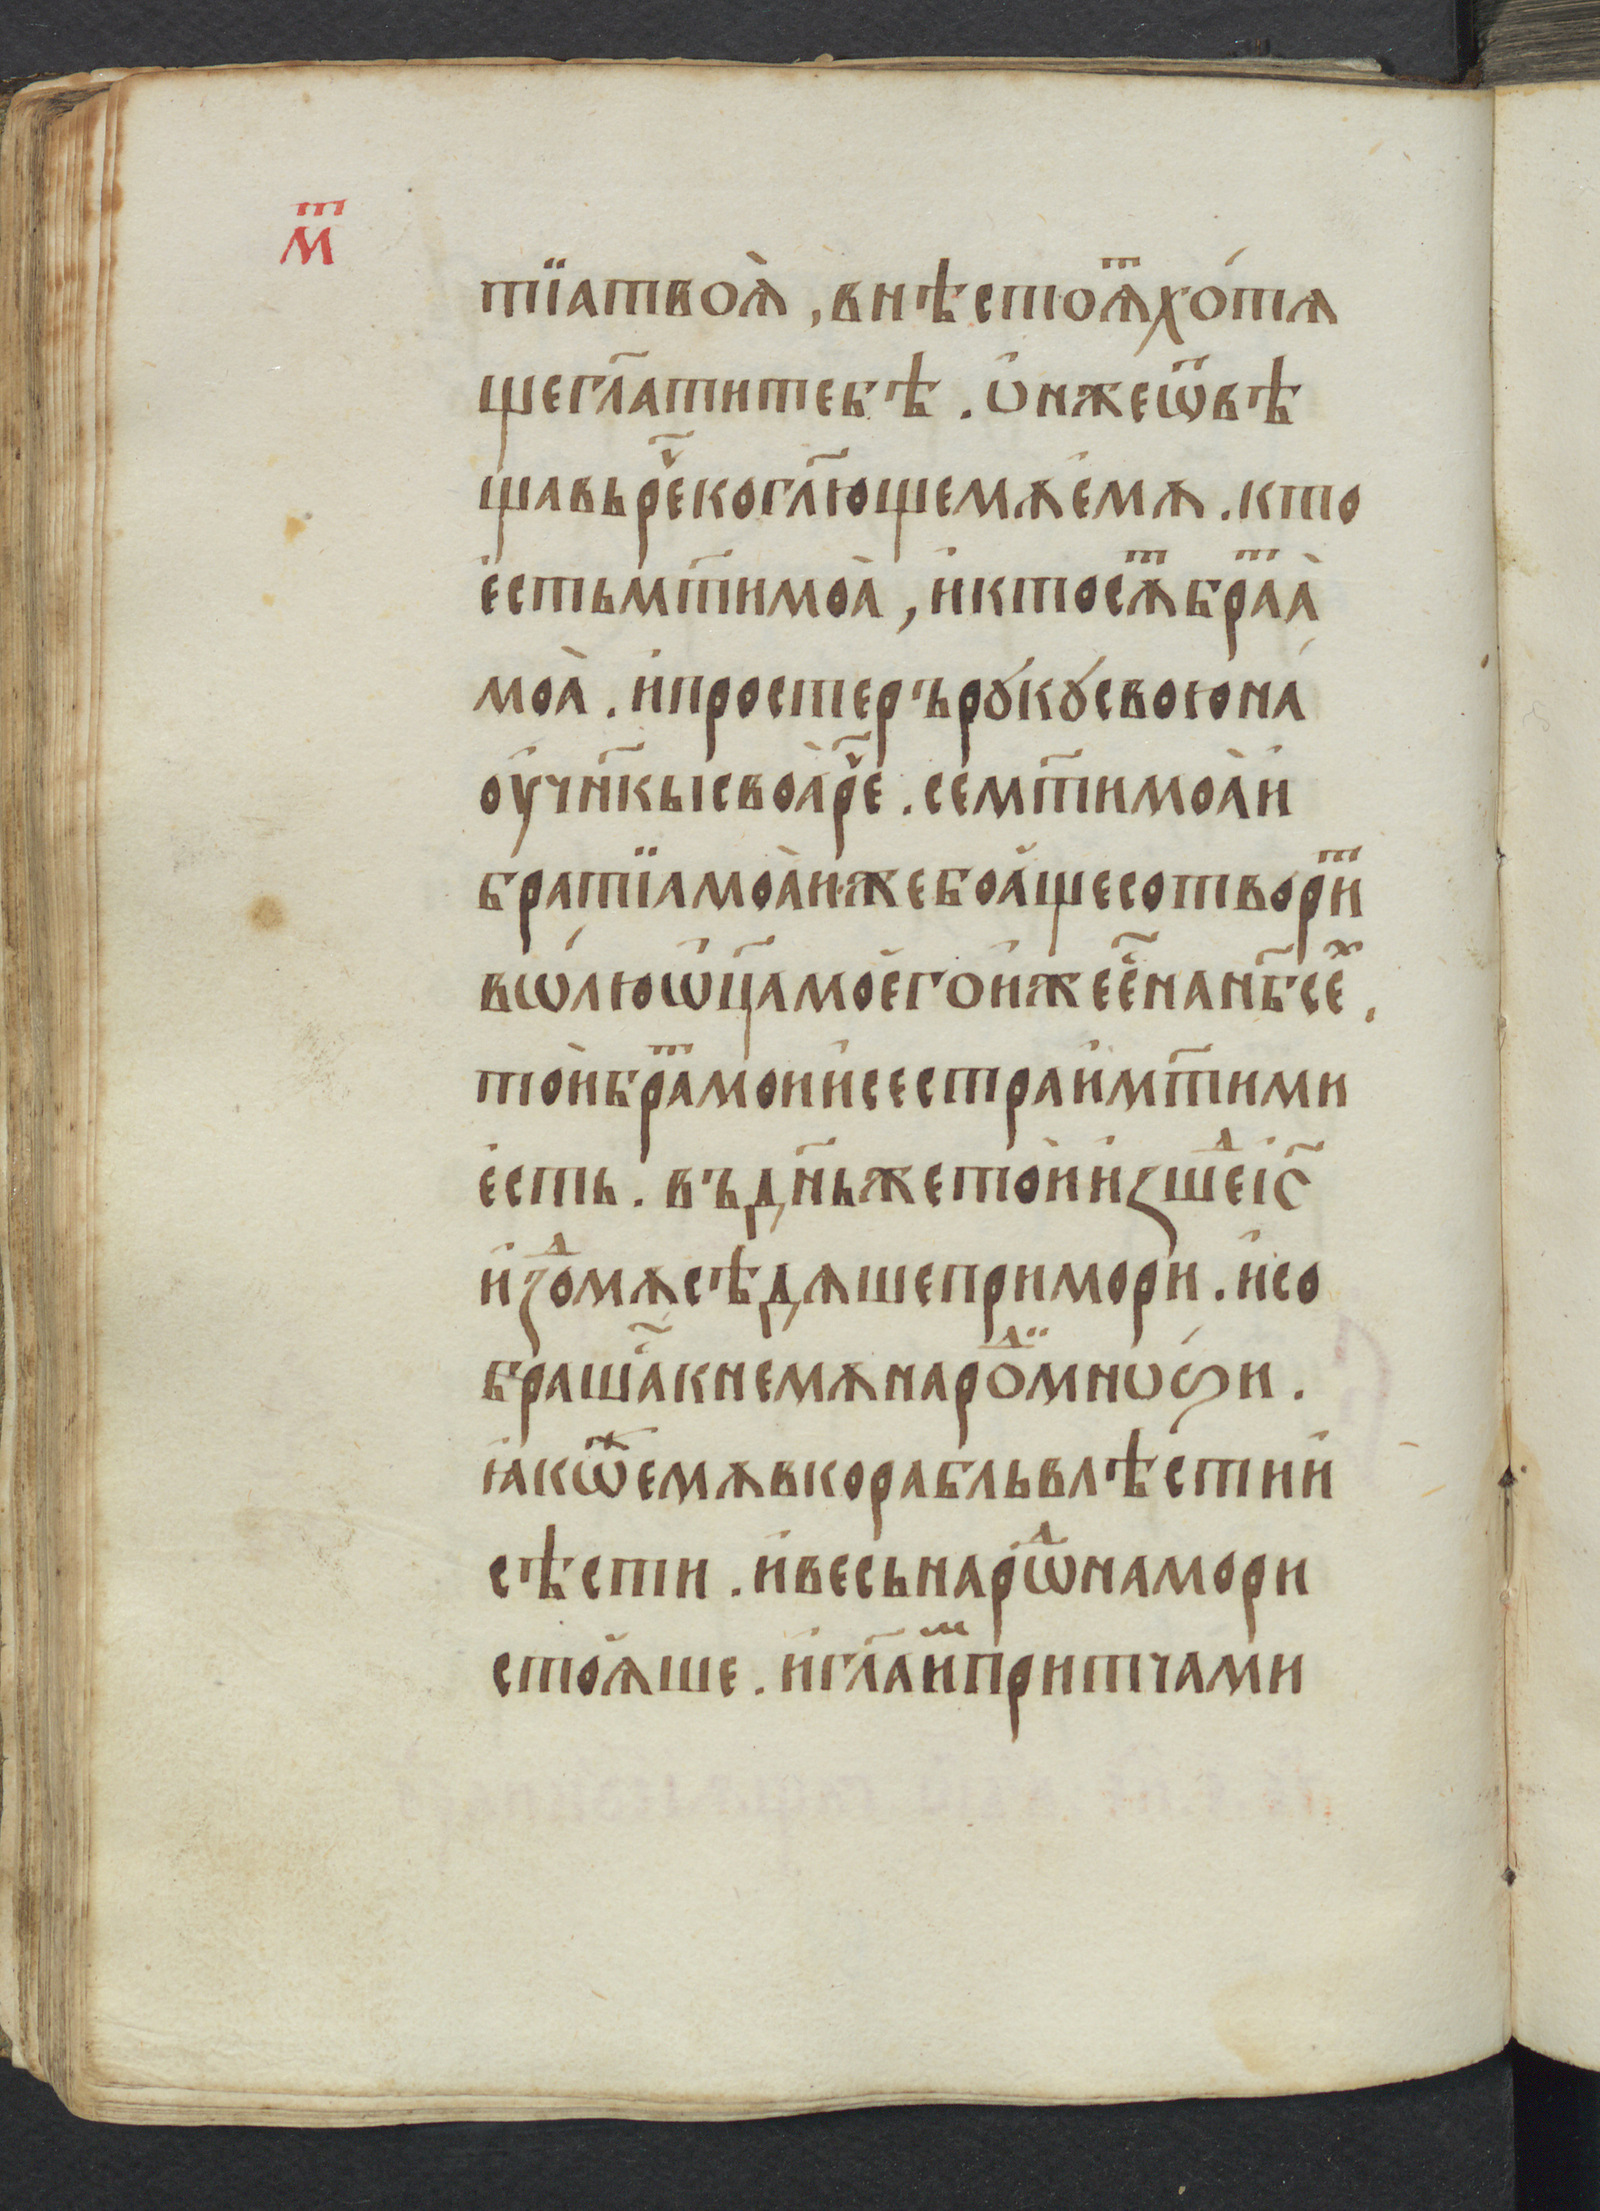 мⷮ
тїатвоѧ̀,внѣстоѧⷮхо́тѧ
щегл҃атитебѣ.ѻ҆нжеѿвѣ
щавьре҃когл҃ющемѫе҆мѫ.кто
е҆стьмт҃имоа̀,и҆ктосѫⷮбраⷮа̀
моа̀.и҆простеръ рꙋкꙋсвоюна́
оу҆чн҃кысвоа̀ре҃.семт҃имоа̀и҆
братїамоа̀и҆жебоа҆щесотвориⷮ
вѡ́люѿц҃амое҆гои҆жее҆҃нанб҃сеⷯ.
то́ибраⷮмоии҆сестраи҆мт҃ими
е҆сть.въдн҃ьжето́ии҆зшеⷣіс҃
и҆здоⷨмѫсѣдѧшепримори.и҆со
браша҃кнемѫнароⷣ҇мнѻѕи.
ꙗ҆кѡⷤемѫвкорабльвлѣстии҆
сѣсти.и҆весьнарѡⷣнамори
стоѧ҆ше.и҆гл҃аиⷨпритчами